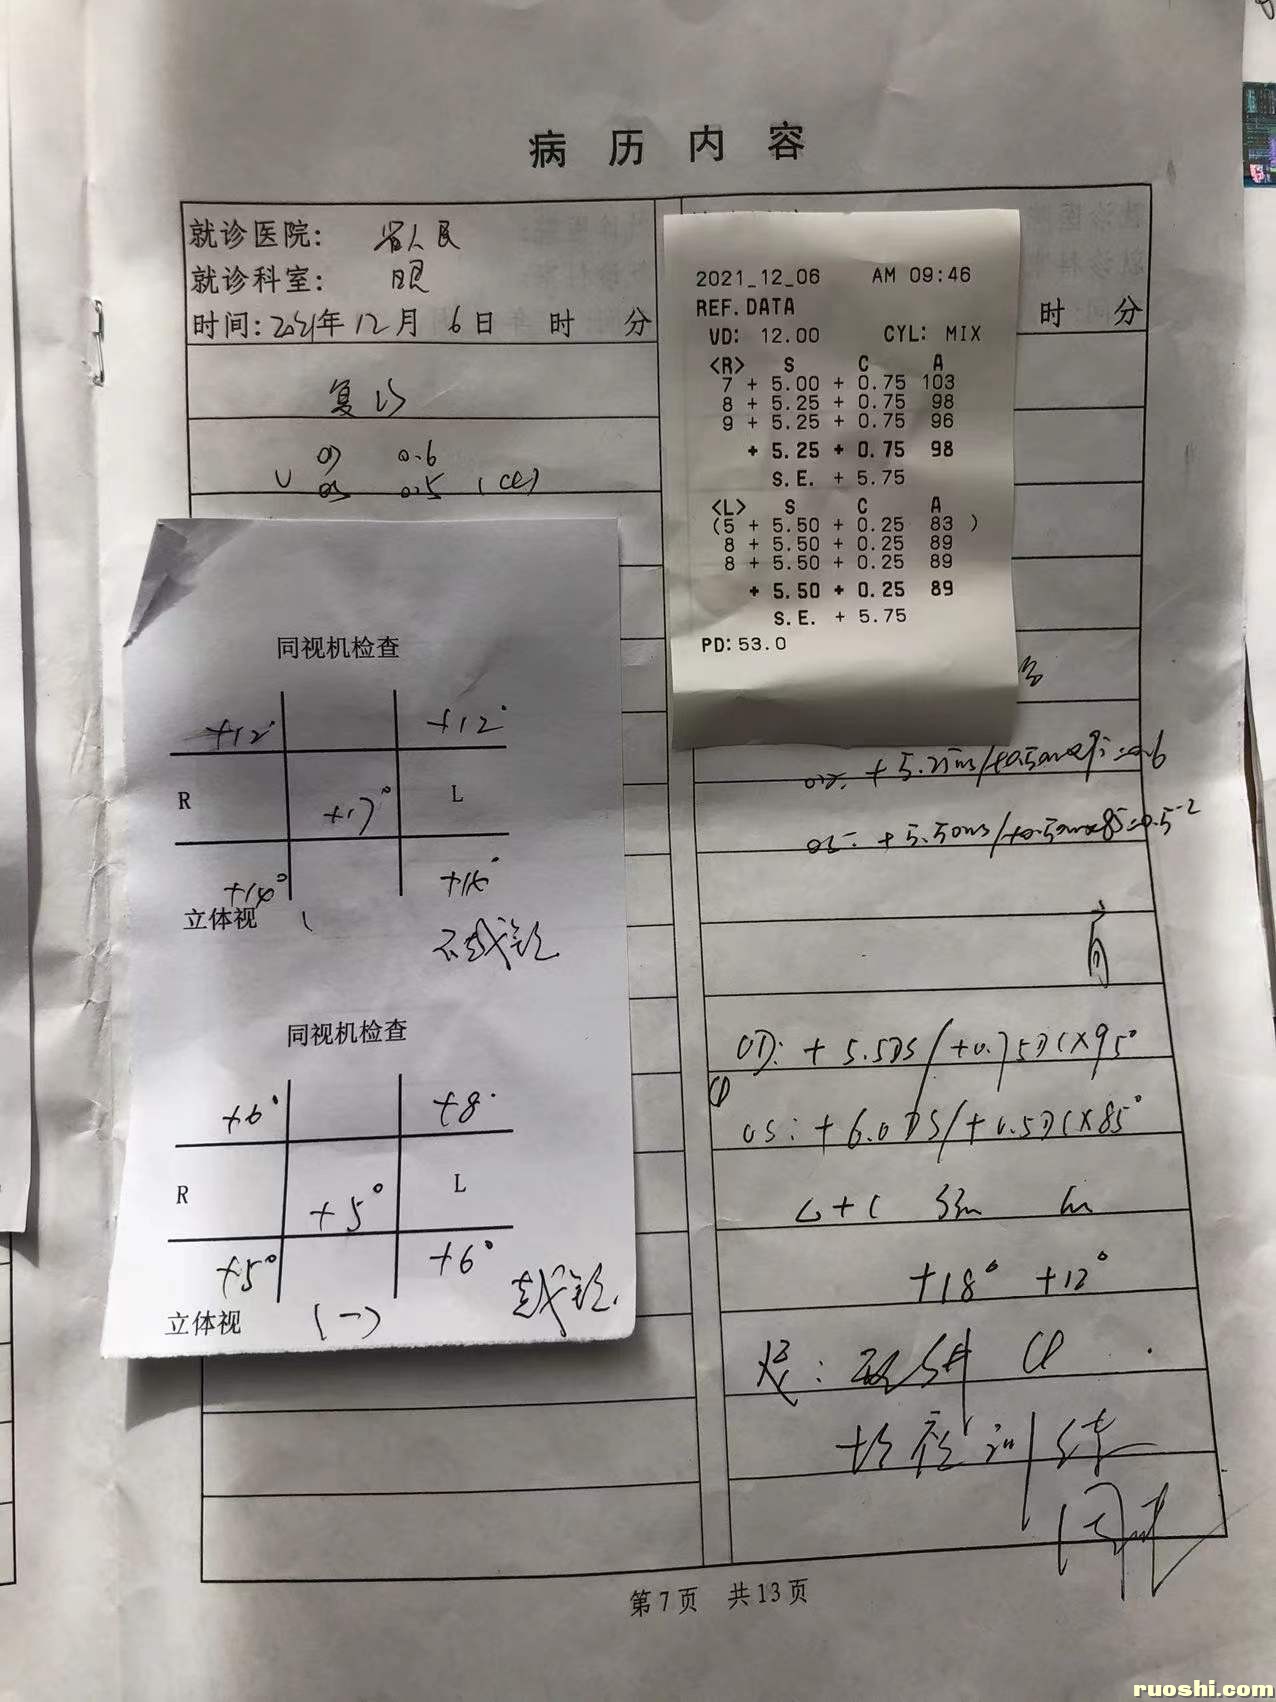 病历内容
就诊医院： 省人民
就诊科室： 眼
时间：2021年12月6日 时 分
复诊
V OD 0.6
OS 0.5 (CC)
同视机检查
+12° +12°
R +17° L
+14°
立体视
不戴镜
同视机检查
+6° +8°
R +5° L
+5° +6°
戴镜
立体视 (一)
时 分
2021_12_06 AM 09:46
REF.DATA
VD: 12.00 CYL: MIX
<R> S C A
7 + 5.00 + 0.75 103
8 + 5.25 + 0.75 98
9 + 5.25 + 0.75 96
+ 5.25 + 0.75 98
S.E. + 5.75
<L> S C A
(5 + 5.50 + 0.25 83 )
8 + 5.50 + 0.25 89
8 + 5.50 + 0.25 89
+ 5.50 + 0.25 89
S.E. + 5.75
PD: 53.0
OD: +5.5DS/+0.75DC×95°
OS: +6.0DS/+0.5DC×85°
33cm 6m
+18° +12°
训练
第7页 共13页
ruoshi.com